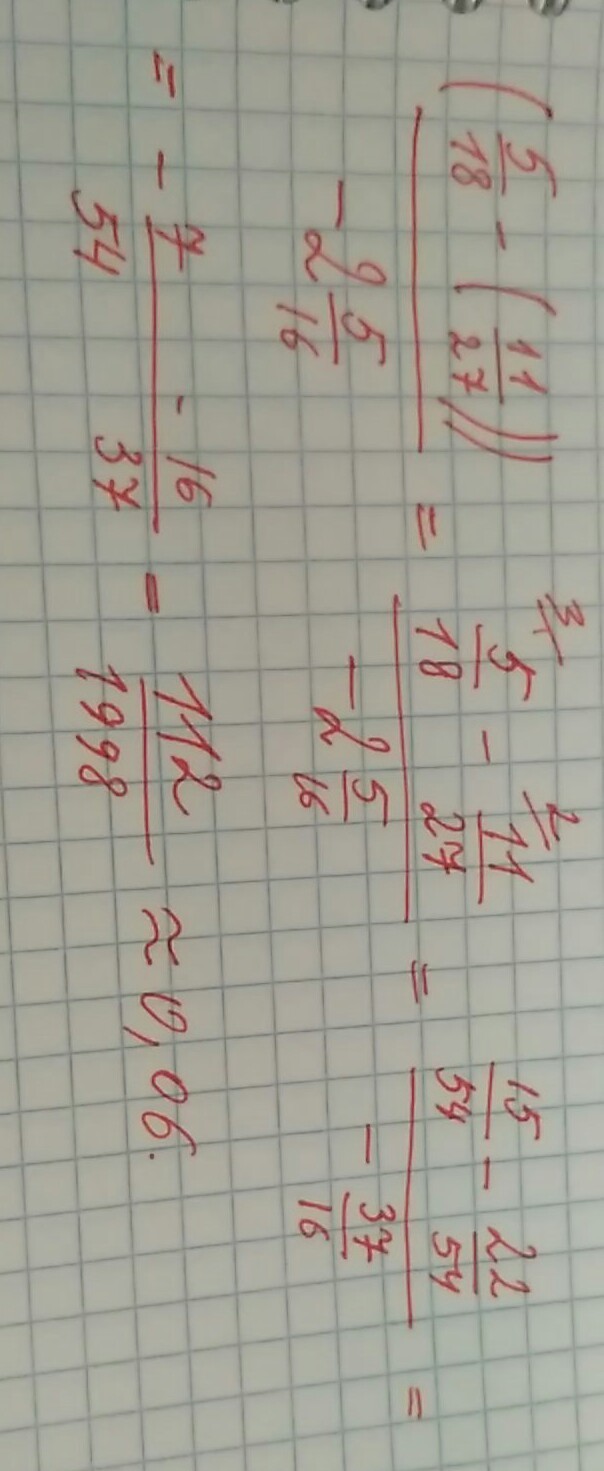 (5/18 - (11/27)) / (-2 5/16) = (5/18 ³ - 11/27 ²) / (-2 5/16) = (15/54 - 22/54) / (- 37/16) =
= - 7/54 · 16/37 - 112/1998 ≈ 0,06.